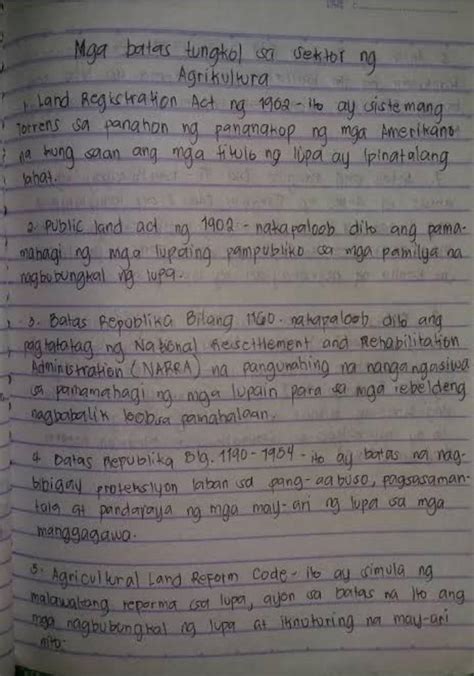 Mga batas tungkol sa sektor ng
Agrikultura
1. Land Registration Act ng 1902 - ito ay sistemang
Torrens sa panahon ng pananakop ng mga Amerikano
na kung saan ang mga titulo ng lupa ay ipinatalang
lahat.
2. Public land act ng 1902 - nakapaloob dito ang pama-
mahagi ng mga lupaing pampubliko sa mga pamilya na
nagbubungkal ng lupa.
3. Batas Republika Bilang 1160 - nakapaloob dito ang
pagtatatag ng National Resettlement and Rehabilitation
Administration (NARRA) na pangunahing na nangangasiwa
sa pamamahagi ng mga lupain para sa mga rebeldeng
nagbabalik loob sa pamahalaan.
4. Batas Republika Blg. 1190 - 1954 - ito ay batas na nag-
bibigay proteksiyon laban sa pang-aabuso, pagsasaman-
tala at pandaraya ng mga may-ari ng lupa sa mga
manggagawa.
5. Agricultural Land Reform Code - ito ay simula ng
malawakang reporma sa lupa, ayon sa batas na ito ang
mga nagbubungkal ng lupa at itinuturing na may-ari
nito.